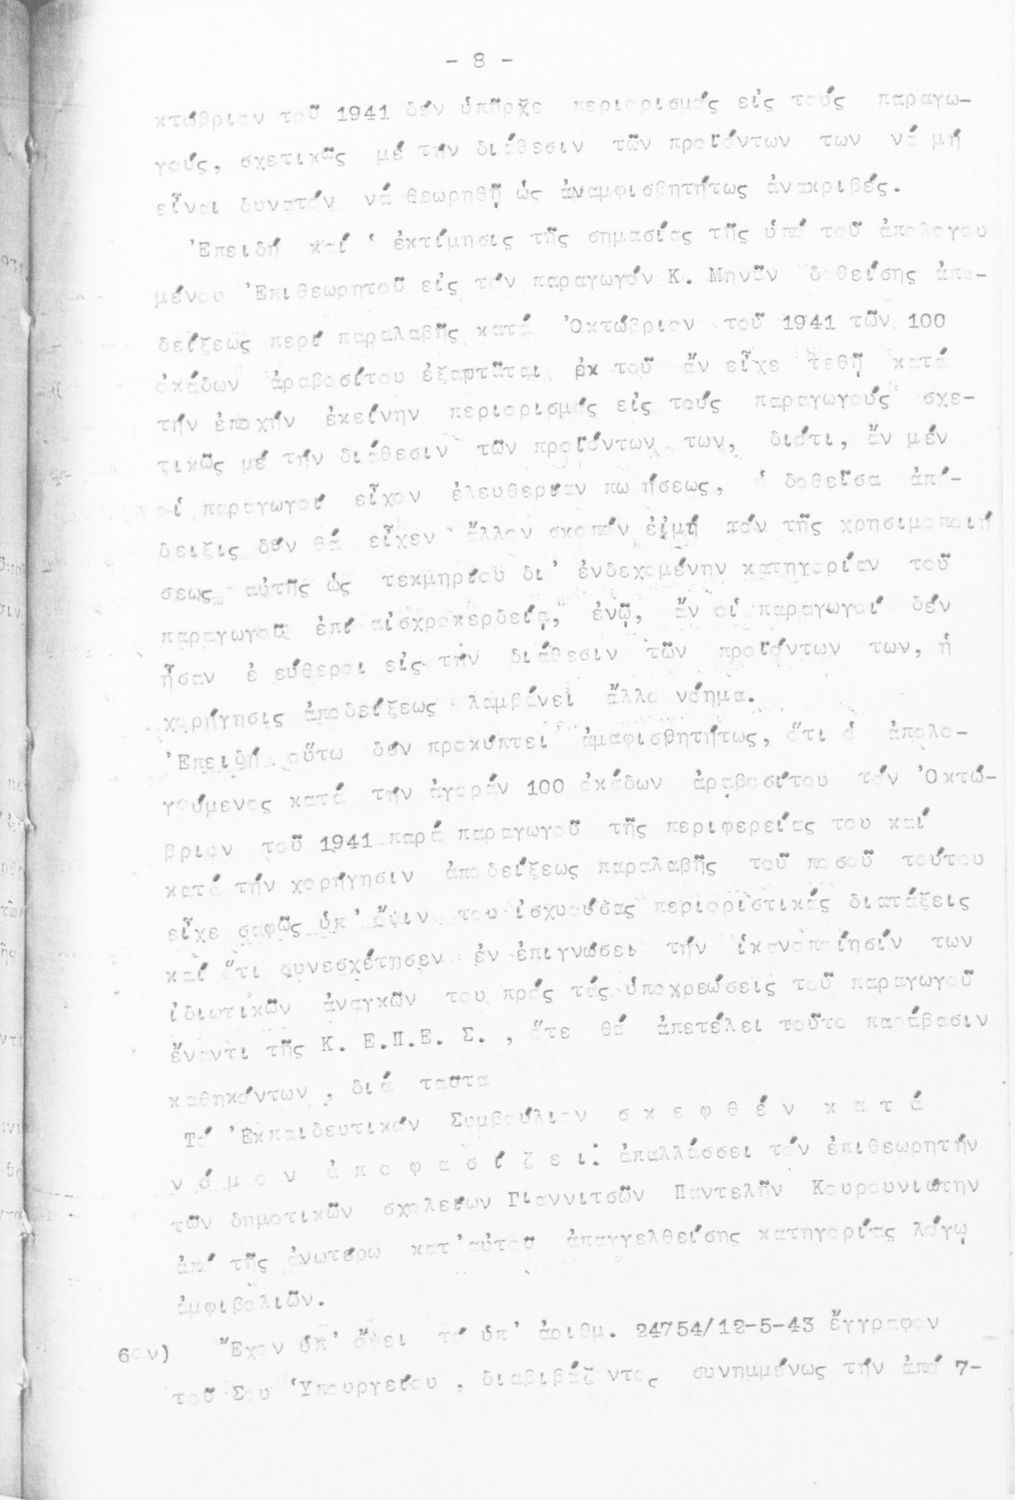 - 8 -
κτώβριον τοῦ 1941 δέν ὑπῆρξε περιορισμός εἰς τούς παραγω-
γούς, σχετικῶς μέ τήν διάθεσιν τῶν προϊόντων των νά μή
εἶναι δυνατόν νά θεωρηθῇ ὡς ἀναμφισβητήτως ἀνακριβές.
Ἐπειδή καί ἡ ἐκτίμησις τῆς σημασίας τῆς ὑπό τοῦ ἀπολογου
μένου Ἐπιθεωρητοῦ εἰς τόν παραγωγόν Κ. Μηνᾶν δοθείσης ἀπο-
δείξεως περί παραλαβῆς κατά Ὀκτώβριον τοῦ 1941 τῶν 100
ὀκάδων ἀραβοσίτου ἐξαρτᾶται ἐκ τοῦ ἄν εἶχε τεθῇ κατά
τήν ἐποχήν ἐκείνην περιορισμός εἰς τούς παραγωγούς σχε-
τικῶς μέ τήν διάθεσιν τῶν προϊόντων των, διότι, ἄν μέν
οἱ παραγωγοί εἶχον ἐλευθερίαν πω ήσεως, ἡ δοθεῖσα ἀπό-
δειξις δέν θά εἶχεν ἄλλον σκοπόν εἰμή τόν τῆς χρησιμοποιή
σεως αὐτῆς ὡς τεκμηρίου δι' ἐνδεχομένην κατηγορίαν τοῦ
παραγωγοῦ ἐπί αἰσχροκερδείᾳ, ἐνῷ, ἄν οἱ παραγωγοί δέν
ἦσαν ἐ εύθεροι εἰς τήν διάθεσιν τῶν προϊόντων των, ἡ
χορήγησις ἀποδείξεως λαμβάνει ἄλλο νόημα.
Ἐπειδή οὕτω δέν προκύπτει ἀμαφισβητήτως, ὅτι ὁ ἀπολο-
γούμενος κατά τήν ἀγοράν 100 ὀκάδων ἀραβοσίτου τόν Ὀκτώ-
βριον τοῦ 1941 παρά παραγωγοῦ τῆς περιφερείας του καί
κατά τήν χορήγησιν ἀποδείξεως παραλαβῆς τοῦ ποσοῦ τούτου
εἶχε σαφῶς ὑπ' ὄψιν του ἰσχυούσας περιοριστικάς διατάξεις
καί ὅτι συνεσχέτησεν ἐν ἐπιγνώσει τήν ἱκανοποίησίν των
ἰδιωτικῶν ἀναγκῶν του πρός τάς ὑποχρεώσεις τοῦ παραγωγοῦ
ἔναντι τῆς Κ. Ε.Π.Ε. Σ. , ὅτε θά ἀπετέλει τοῦτο παράβασιν
καθηκόντων , διά ταῦτα
Τό Ἐκπαιδευτικόν Συμβούλιον σ κ ε φ θ έ ν κ α τ ά
ν ό μ ο ν ἀ π ο φ α σ ί ζ ε ι: ἀπαλλάσσει τόν ἐπιθεωρητήν
τῶν δημοτικῶν σχολείων Γιαννιτσῶν Παντελῆν Κουρουνιώτην
ἀπό τῆς ἀνωτέρω κατ'αὐτοῦ ἀπαγγελθείσης κατηγορίας λόγῳ
ἀμφιβολιῶν.
6ον) Ἔχον ὑπ' ὄψει τό ὑπ' ἀριθμ. 24754/12-5-43 ἔγγραφον
τοῦ Σου Ὑπουργείου , διαβιβάζ ντος συνημμένως τήν ἀπό 7-